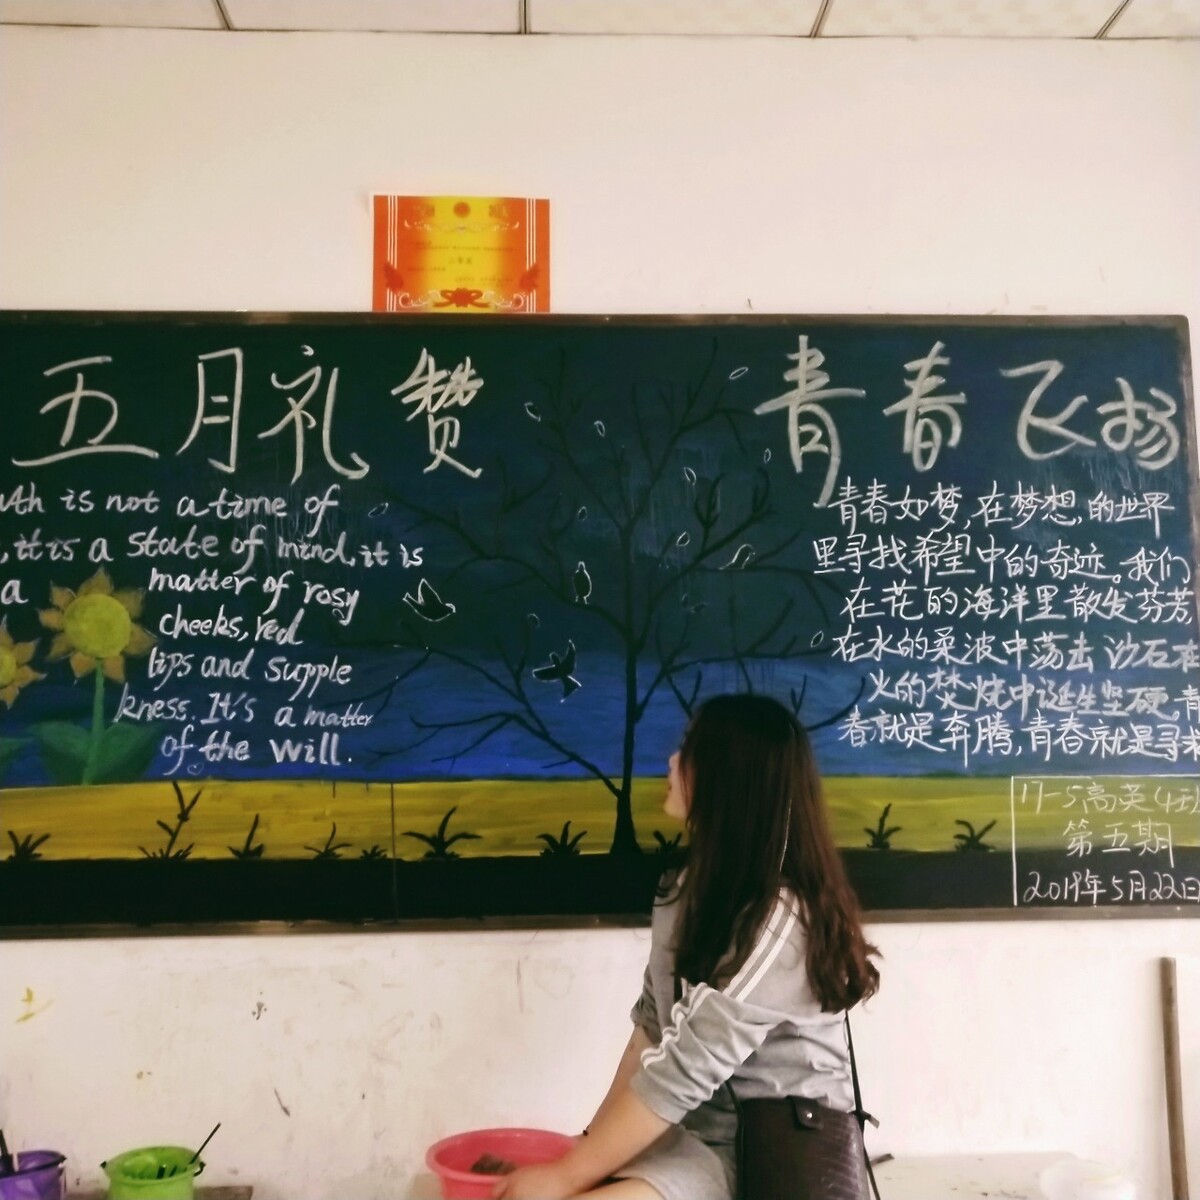 五月礼赞
青春飞扬
uth is not a time of
, it is a state of mind, it is
a matter of rosy
cheeks, red
lips and supple
kness. It's a matter
of the will.
青春如梦,在梦想,的世界
里寻找希望中的奇迹。我们
在花的海洋里散发芬芳,
在水的柔波中荡去沙石在
火的焚烧中诞生坚硬,青
春就是奔腾,青春就是寻求
17-5高英(4)班
第五期
2019年5月22日